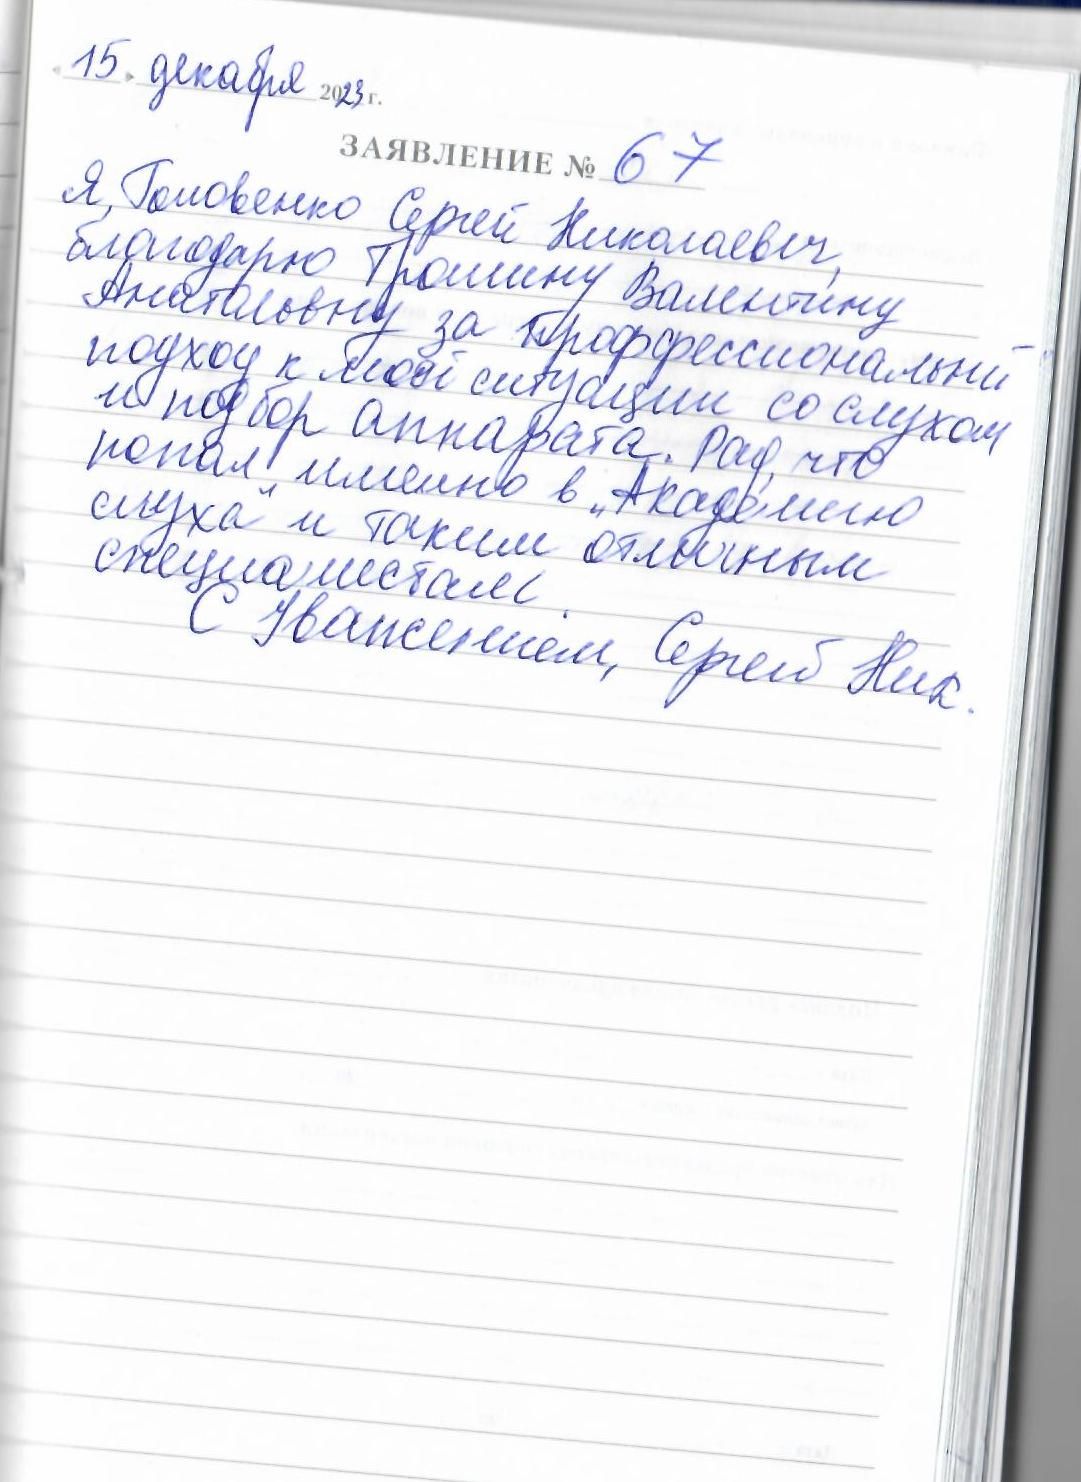 «15» декабря 2023 г.
ЗАЯВЛЕНИЕ № 67
Я, Головенко Сергей Николаевич,
благодарю Трошину Валентину
Анатольевну за проффессиональный
подход к моей ситуации со слухом
и подбор аппарата. Рад, что
попал именно в „Академию
слуха" и таким отличным
специалистам.
С Уважением, Сергей Ник.